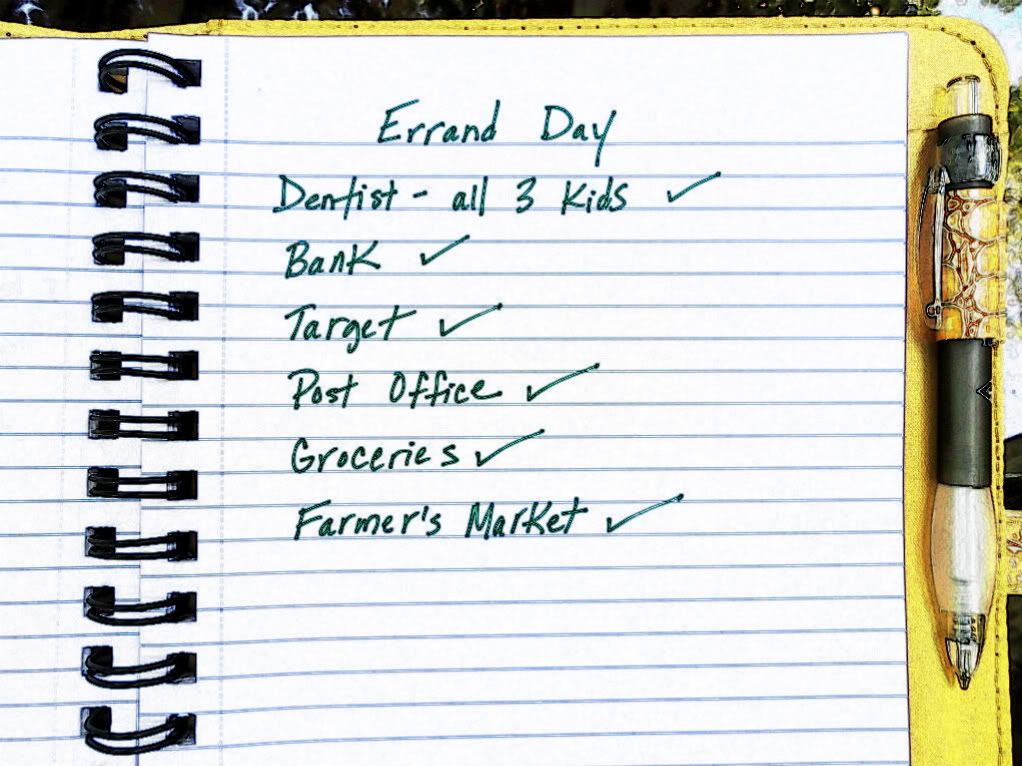 Errand Day
Dentist - all 3 Kids ✓
Bank ✓
Target ✓
Post Office ✓
Groceries ✓
Farmer's Market ✓